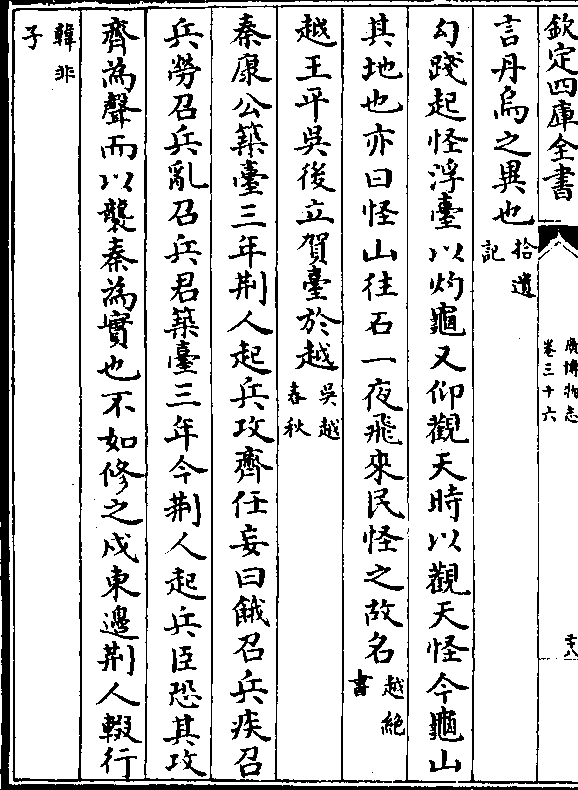 欽定四庫全書
廣博物志
卷三十六
言丹烏之異也拾遺
記
勾踐起怪浮臺以灼龜又仰觀天時以觀天怪今龜山
其地也亦曰怪山往石一夜飛來民怪之故名越絶
書
越王平吳後立賀臺於越吳越
春秋
秦康公築臺三年荆人起兵攻齊任妄曰餓召兵疾召
兵勞召兵亂召兵君築臺三年今荆人起兵臣恐其攻
齊為聲而以襲秦為實也不如修之戍東邊荆人輟行
韓非
子